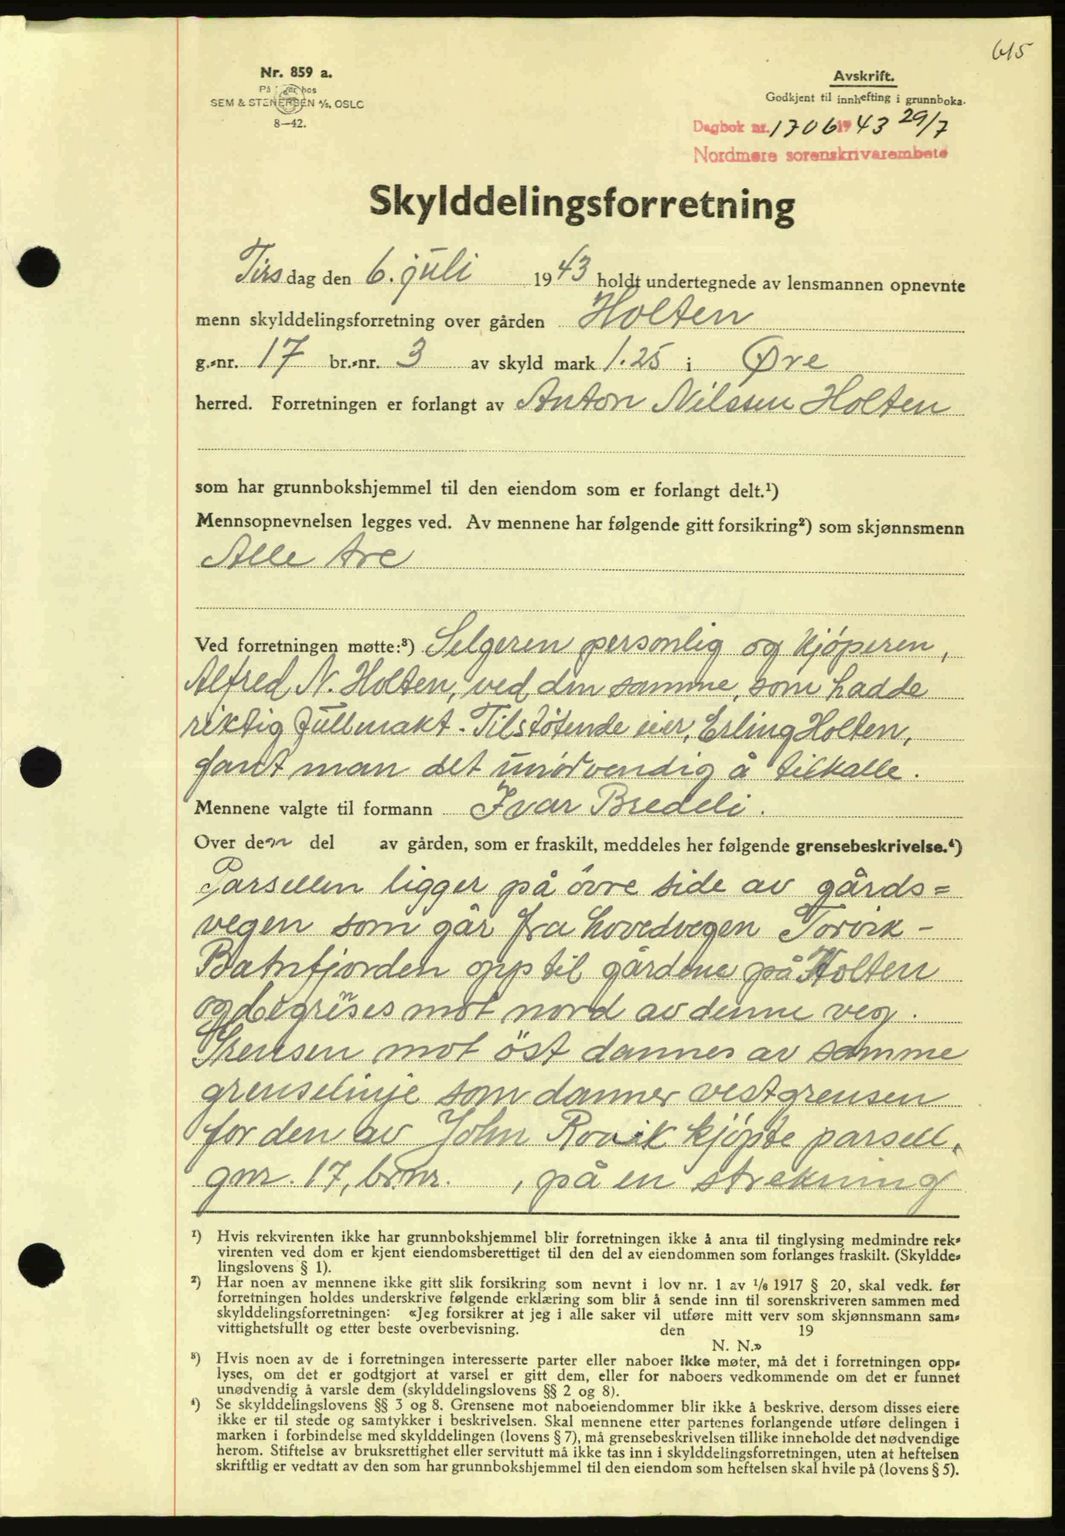 615
Nr. 859 a.
På lager hos
SEM & STENERSEN A/S, OSLO
8—42.
Avskrift.
Godkjent til innhefting i grunnboka.
Dagbok nr. 1706 19 43 29/7
Nordmøre sorenskrivarembete
Skylddelingsforretning
Tirsdag den 6. juli 1943 holdt undertegnede av lensmannen opnevnte
menn skylddelingsforretning over gården Holten
g.-nr. 17 br.-nr. 3 av skyld mark 1.25 i Øre
herred. Forretningen er forlangt av Anton Nilssen Holten
som har grunnbokshjemmel til den eiendom som er forlangt delt.¹)
Mennsopnevnelsen legges ved. Av mennene har følgende gitt forsikring²) som skjønnsmenn
Alle tre
Ved forretningen møtte:³) Selgeren personlig og kjøperen,
Alfred N. Holten, ved den samme, som hadde
riktig fullmakt. Tilstøtende eier, Erling Holten,
fant man det unødvendig å tilkalle.
Mennene valgte til formann Ivar Bredeli.
Over den del av gården, som er fraskilt, meddeles her følgende grensebeskrivelse.⁴)
Parsellen ligger på övre side av gårds=
vegen som går fra hovedvegen Torvik-
Batnfjorden opp til gårdene på Holten
og begrenses mot nord av denne veg.
Grensen mot öst dannes av samme
grenselinje som danner vestgrensen
for den av John Rovik kjöpte parsell,
gnr. 17, br.nr. , på en strekning
¹) Hvis rekvirenten ikke har grunnbokshjemmel blir forretningen ikke å anta til tinglysing medmindre rek-
virenten ved dom er kjent eiendomsberettiget til den del av eiendommen som forlanges fraskilt. (Skyldde-
lingslovens § 1).
²) Har noen av mennene ikke gitt slik forsikring som nevnt i lov nr. 1 av ¹/₆ 1917 § 20, skal vedk. før
forretningen holdes underskrive følgende erklæring som blir å sende inn til sorenskriveren sammen med
skylddelingsforretningen: «Jeg forsikrer at jeg i alle saker vil utføre mitt verv som skjønnsmann sam-
vittighetsfullt og etter beste overbevisning. den 19
N. N.»
³) Hvis noen av de i forretningen interesserte parter eller naboer ikke møter, må det i forretningen opp-
lyses, om det er godtgjort at varsel er gitt dem, eller for naboers vedkommende om det er funnet
unødvendig å varsle dem (skylddelingslovens §§ 2 og 8).
⁴) Se skylddelingslovens §§ 3 og 8. Grensene mot naboeiendommer blir ikke å beskrive, dersom disses eiere
ikke er til stede og samtykker i beskrivelsen. Skal mennene etter partenes forlangende utføre delingen i
marken i forbindelse med skylddelingen (lovens § 7), må grensebeskrivelsen tillike inneholde det nødvendige
herom. Stiftelse av bruksrettighet eller servitutt må ikke tas inn i skylddelingsforretningen, uten at heftelsen
skriftlig er vedtatt av den som har grunnbokshjemmel til den eiendom som heftelsen skal hvile på (lovens § 5).